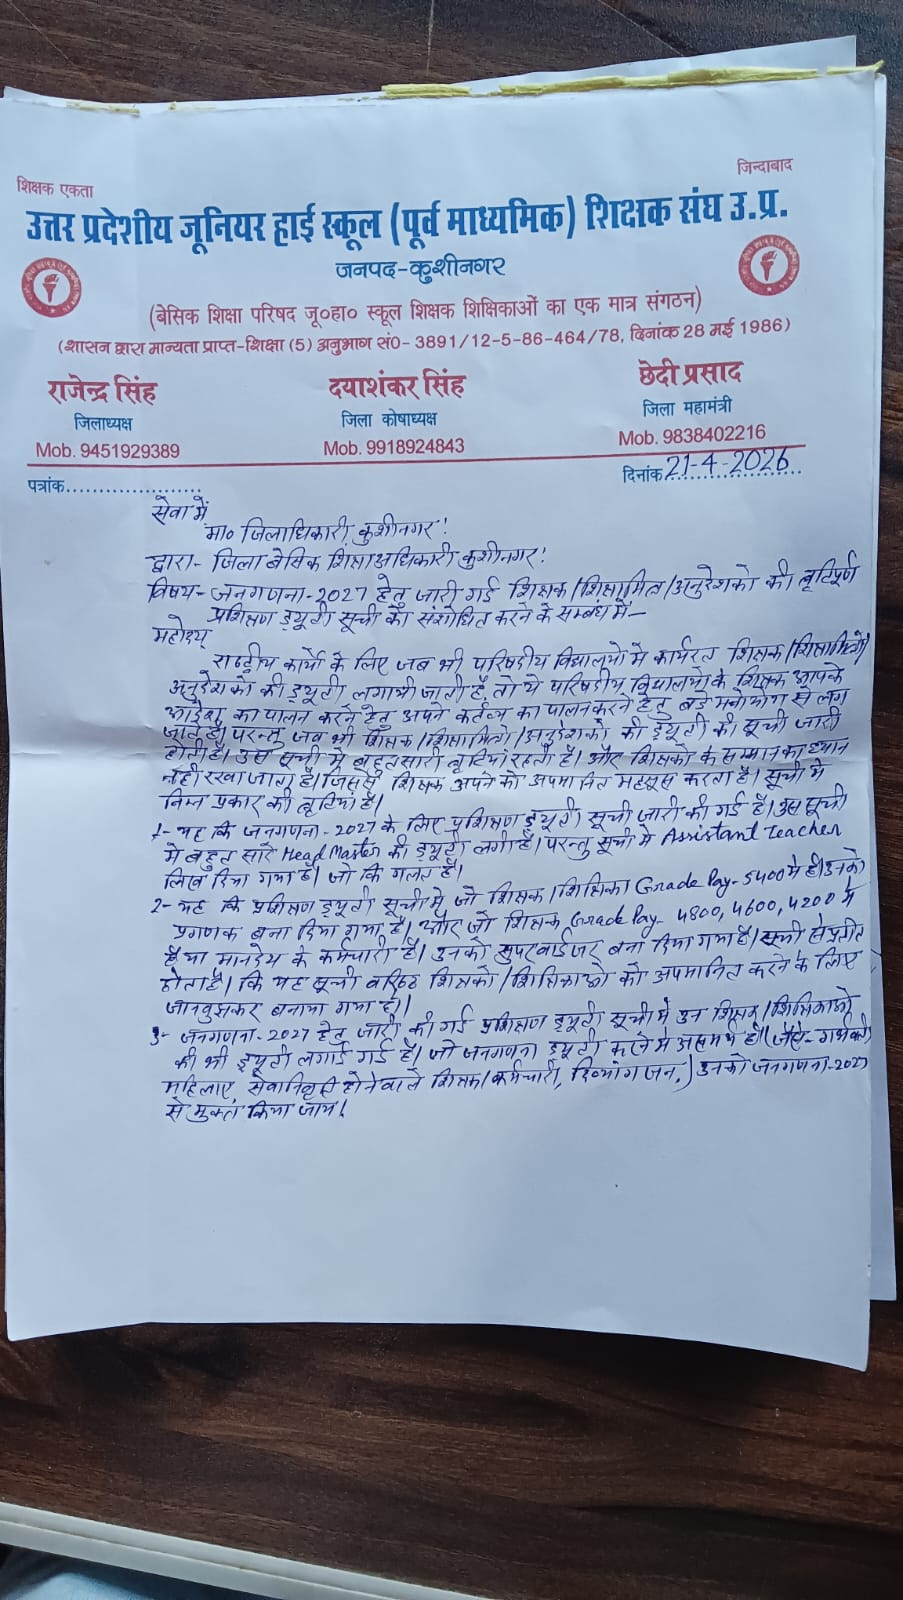 शिक्षक एकता
जिन्दाबाद
उत्तर प्रदेशीय जूनियर हाई स्कूल (पूर्व माध्यमिक) शिक्षक संघ उ.प्र.
जनपद-कुशीनगर
(बेसिक शिक्षा परिषद जू०हा० स्कूल शिक्षक शिक्षिकाओं का एक मात्र संगठन)
(शासन द्वारा मान्यता प्राप्त-शिक्षा (5) अनुभाग सं0- 3891/12-5-86-464/78, दिनांक 28 मई 1986)
राजेन्द्र सिंह
जिलाध्यक्ष
Mob. 9451929389
दयाशंकर सिंह
जिला कोषाध्यक्ष
Mob. 9918924843
छेदी प्रसाद
जिला महामंत्री
Mob. 9838402216
पत्रांक....................
दिनांक 21-4-2026
सेवा में
मा० जिलाधिकारी, कुशीनगर!
द्वारा- जिला बेसिक शिक्षा अधिकारी कुशीनगर!
विषय- जनगणना-2027 हेतु जारी गई शिक्षक/शिक्षामित्र/अनुदेशको की त्रुटिपूर्ण
प्रशिक्षण ड्यूटी सूची को संशोधित करने के सम्बंध में-
महोदय्
राष्ट्रीय कार्यो के लिए जब भी परिषदीय विद्यालयो में कार्यरत शिक्षक/शिक्षामित्रो/
अनुदेशको की ड्यूटी लगायी जाती है, तो ये परिषदीय विद्यालयो के शिक्षक आपके
आदेश का पालन करने हेतु अपने कर्तव्य का पालन करने हेतु बडे मनोयोग से लग
जाते है। परन्तु जब भी शिक्षक/शिक्षामित्रो/अनुदेशको की ड्यूटी की सूची जारी
होती है। उस सूची में बहुत सारी त्रुटियां रहती है। और शिक्षको के सम्मान का ध्यान
नही रखा जाता है। जिससे शिक्षक अपने को अपमानित महसूस करता है। सूची में
निम्न प्रकार की त्रुटियां है।
1- यह कि जनगणना-2027 के लिए प्रशिक्षण ड्यूटी सूची जारी की गई है। उस सूची
में बहुत सारे Head Master की ड्यूटी लगी है। परन्तु सूची में Assistant Teacher
लिख दिया गया है। जो कि गलत है।
2- यह कि प्रशिक्षण ड्यूटी सूची में जो शिक्षक/शिक्षिका Grade Pay-5400 में है। उनको
प्रगणक बना दिया गया है। और जो शिक्षक Grade Pay- 4800, 4600, 4200 में
है या मानदेय के कर्मचारी है। उनको सुपरवाईजर बना दिया गया है। सूची से प्रतीत
होता है। कि यह सूची वरिष्ठ शिक्षको/शिक्षिकाओ को अपमानित करने के लिए
जानबुझकर बनाया गया है।
3- जनगणना-2027 हेतु जारी की गई प्रशिक्षण ड्यूटी सूची में उन शिक्षक/शिक्षिकाओ
की भी ड्यूटी लगाई गई है। जो जनगणना ड्यूटी करने में असमर्थ है। (जैसे- गर्भवती
महिलाए, सेवानिवृत्त होने वाले शिक्षक/कर्मचारी, दिव्यांग जन,) उनको जनगणना-2027
से मुक्त किया जाय।